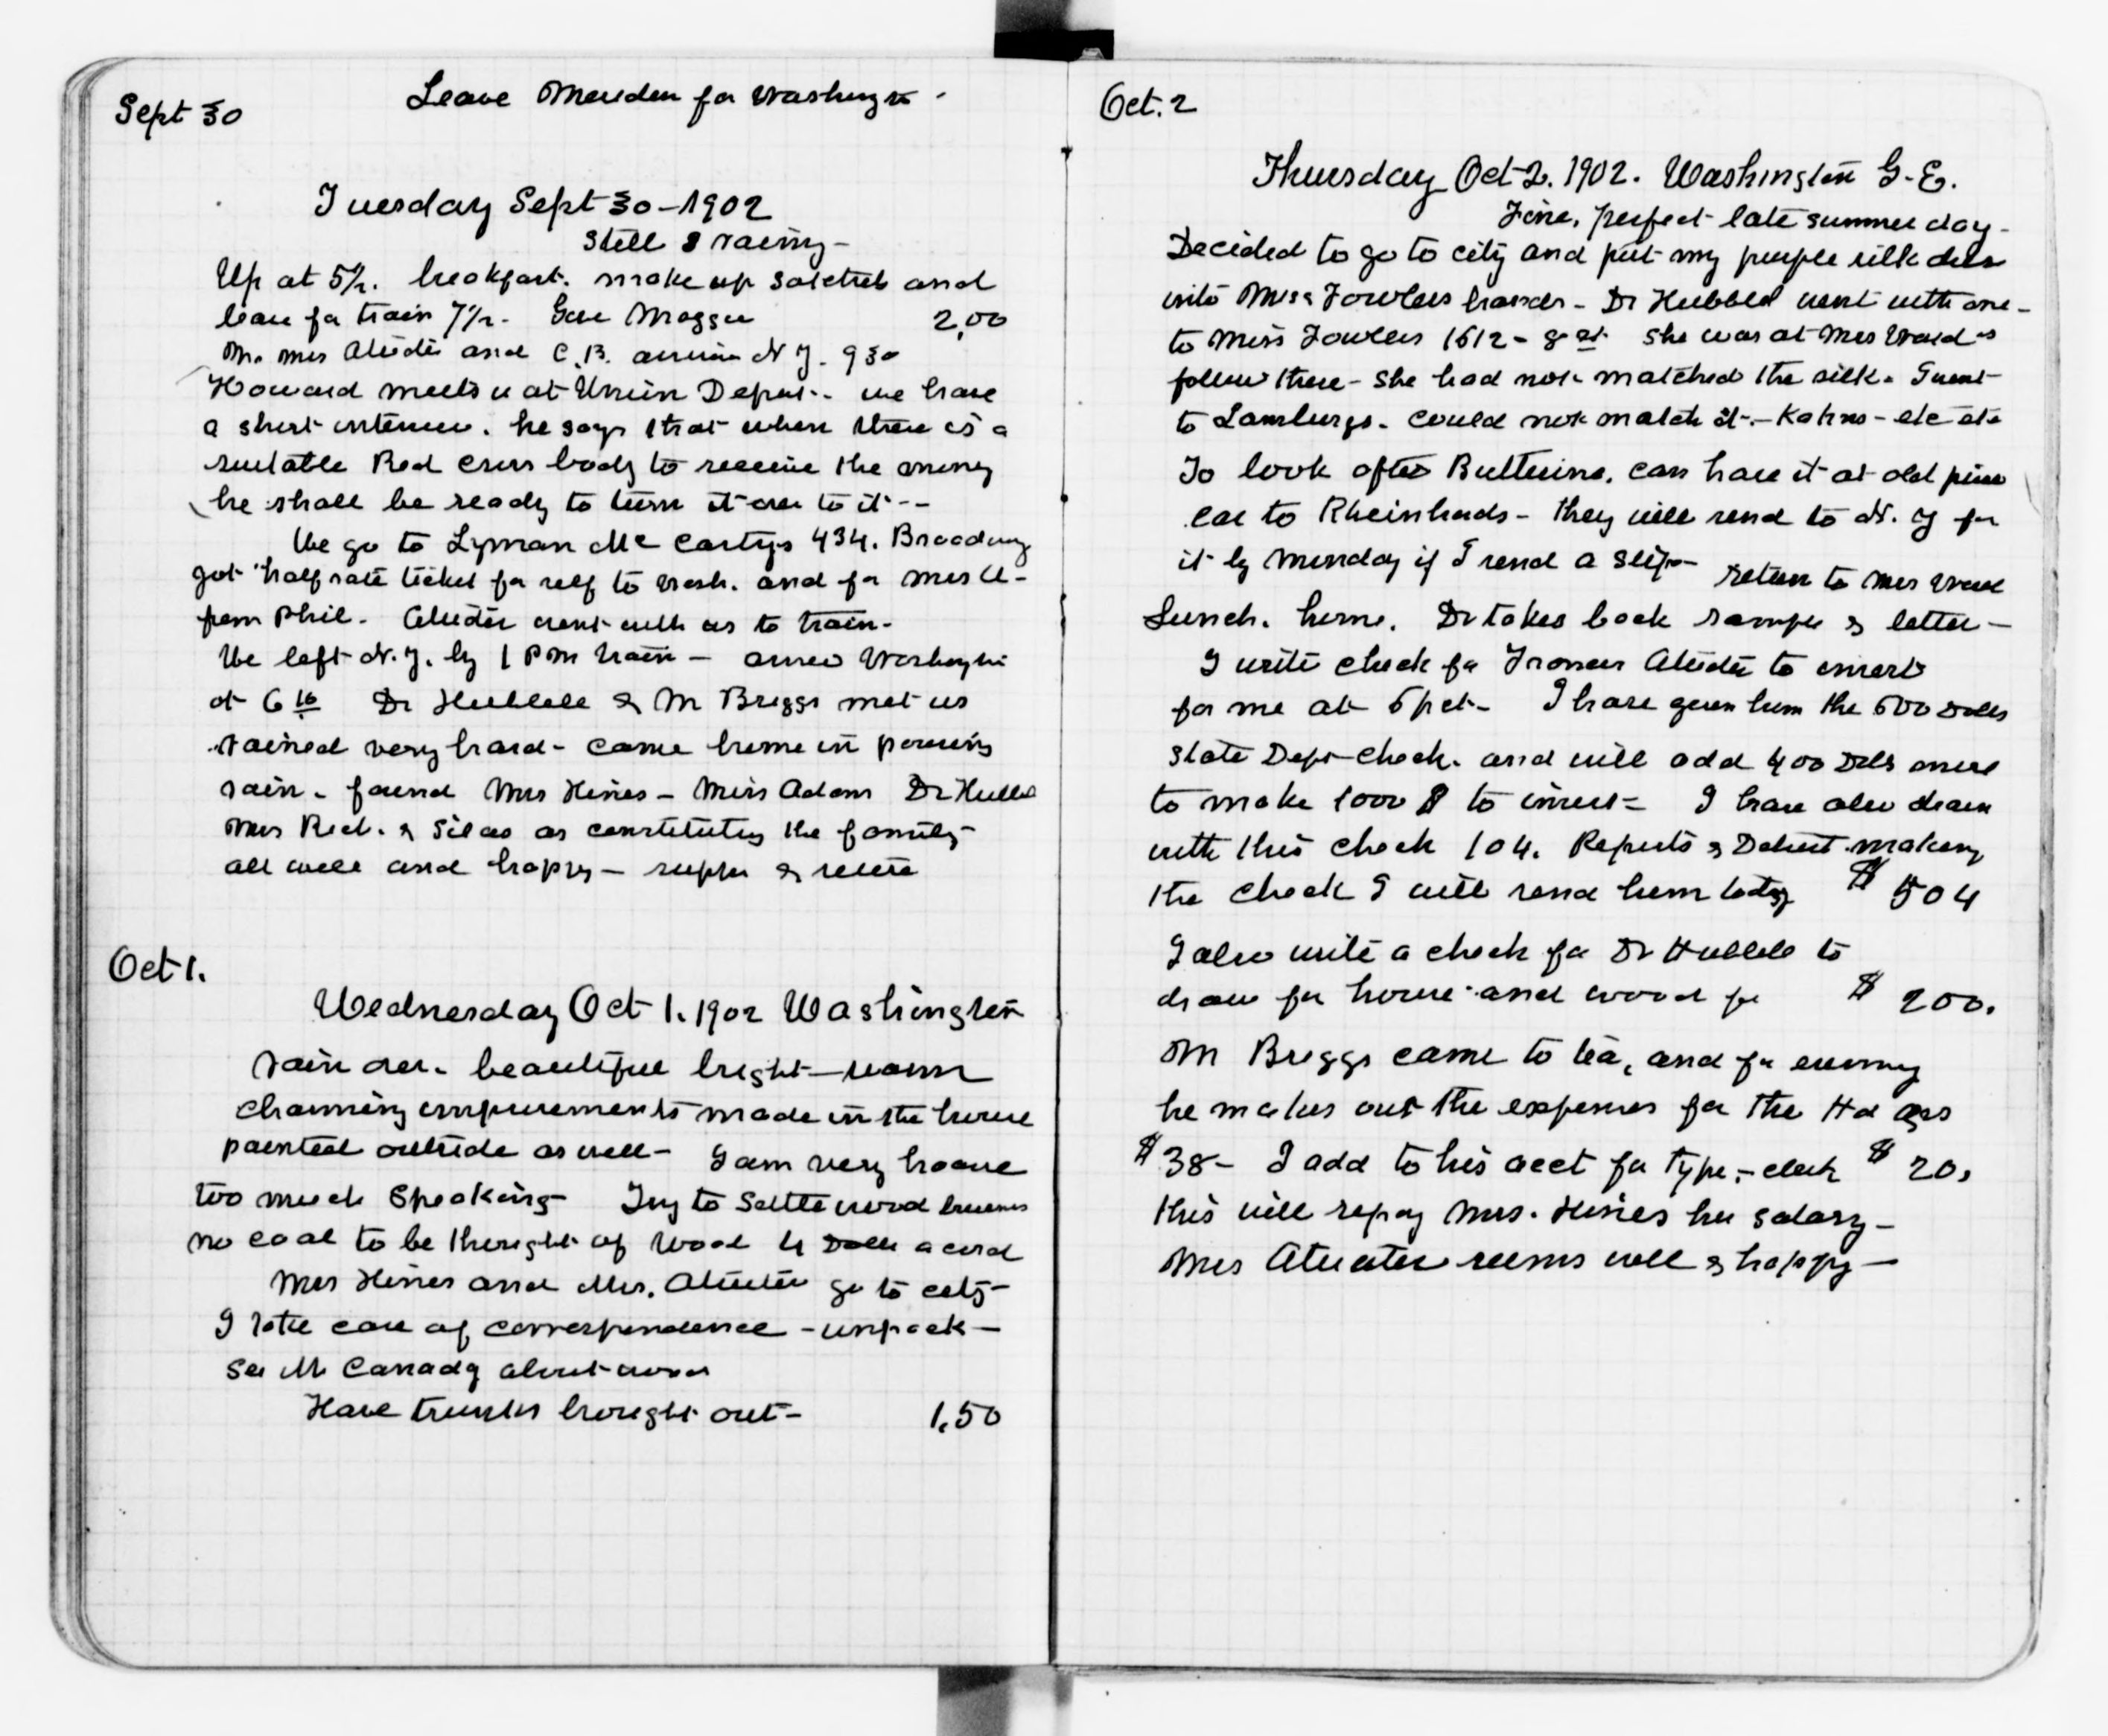 Sept 30
Leave Meriden for Washington -
Tuesday Sept 30 - 1902
Still & rainy -
Up at 5 1/2. breakfast. make up satchels and
leave for train 7 1/2 - Gave Maggie 2,00
Mr. Mrs Atwater and C.B. arrive N Y. 9 30
Howard meets us at Union Depot - we have
a short interview. he says that when there is a
suitable Red Cross body to receive the money
he shall be ready to turn it over to it --
We go to Lyman McCartys 434. Broadway
got half rate ticket for self to Wash. and for Mrs A -
from Phil - Atwater went with us to train -
We left N.Y. by 1 PM train - arrive Washington
at 6 16 Dr Hubbell & Mr Briggs met us
rained very hard - came home in pouring
rain - found Mrs Hines - Miss Adams Dr Hubbell
Mrs Rich. & Silas as constituting the family -
all well and happy - supper & retire
Oct 1.
Wednesday Oct 1. 1902 Washington
rain over - beautiful bright - warm
Charming improvements made in the house
painted outside as well - I am very hoarse
too much speaking - Try to settle wood business
no coal to be thought of Wood 4 Dolls a cord
Mrs Hines and Mrs. Atwater go to city -
I take care of correspondence - unpack -
See Mr Canady about wood
Have trunks brought out - 1.50
Oct. 2
Thursday Oct 2. 1902. Washington G. E.
Fine, perfect late summer day -
Decided to go to city and put my purple silk dress
into Miss Fowlers hands - Dr Hubbell went with me -
to Miss Fowlers 1612 - 8 st. She was at Mrs Wards
follow there - She had not matched the silk. I went
to Lansburgs - could not match it - Kahns - etc etc
To look after Butterine. can have it at old price
car to Rheinhards - they will send to N. Y for
it by Monday if I send a slip - return to Mrs Ward
Lunch. home. Dr takes back sample & letter -
I write check for Frances Atwater to invest
for me at 6 pct - I have given him the 600 Dolls
State Dept check. and will add 400 Dols more
to make 1000 $ to invest - I have also drawn
with this check 104. Reports & Detroit making
the check I will send him today $ 504
I also write a check for Dr Hubbell to
draw for house and wood for $ 200.
Mr Briggs came to tea, and for evening
he makes out the expenses for the Hd qrs
$ 38 - I add to his acct for type - clerk $ 20,
this will repay Mrs. Hines her salary -
Mrs Atwater seems well & happy -